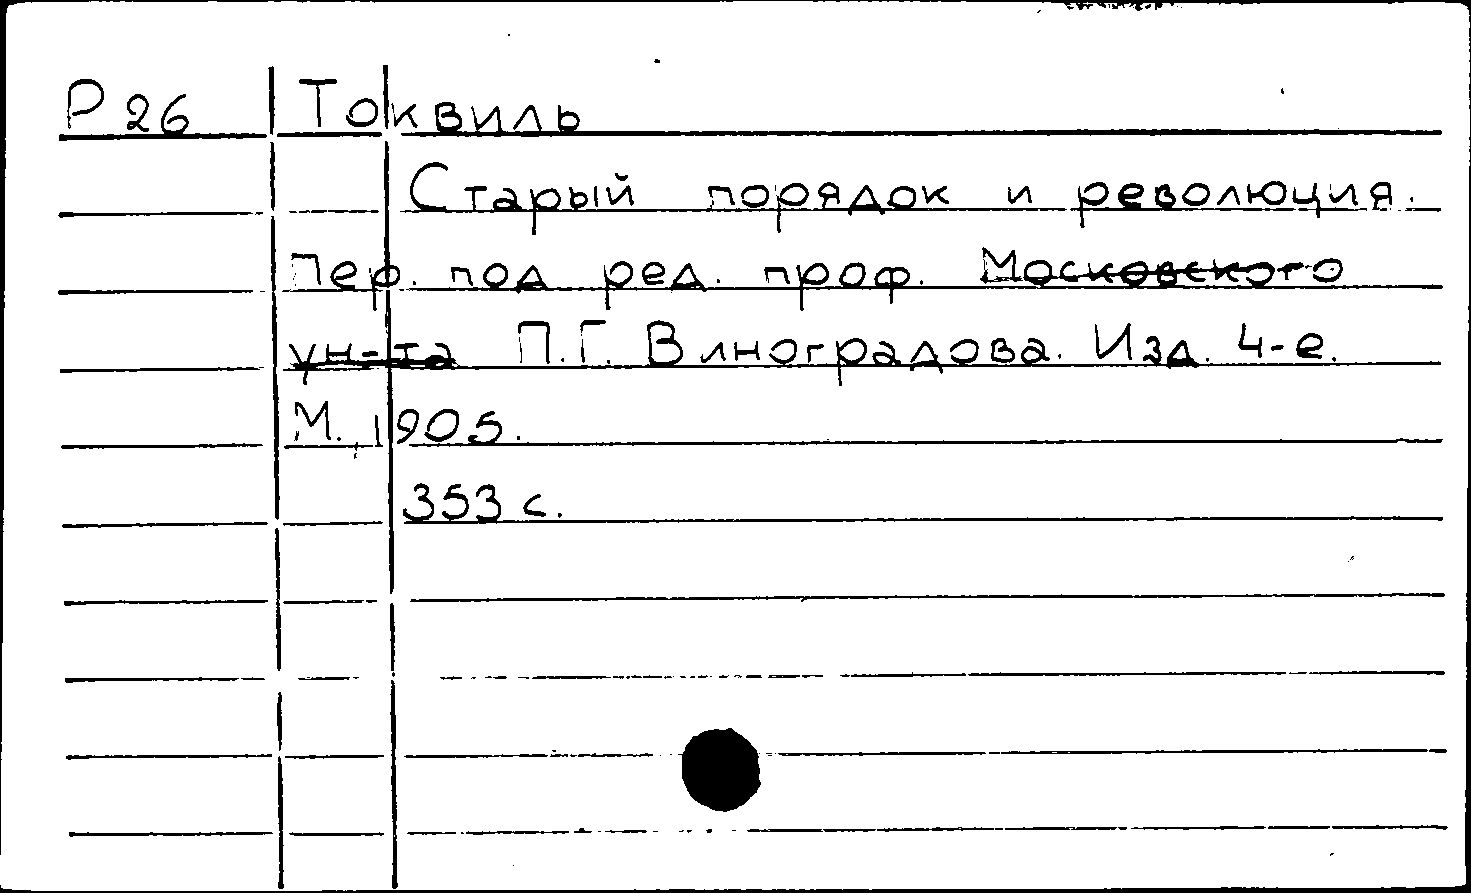 Р 26 Токвиль
Старый порядок и революция.
Пер. под ред. проф. Московского
ун-та П.Г. Виноградова. Изд. 4-е.
М., 1905.
353 с.